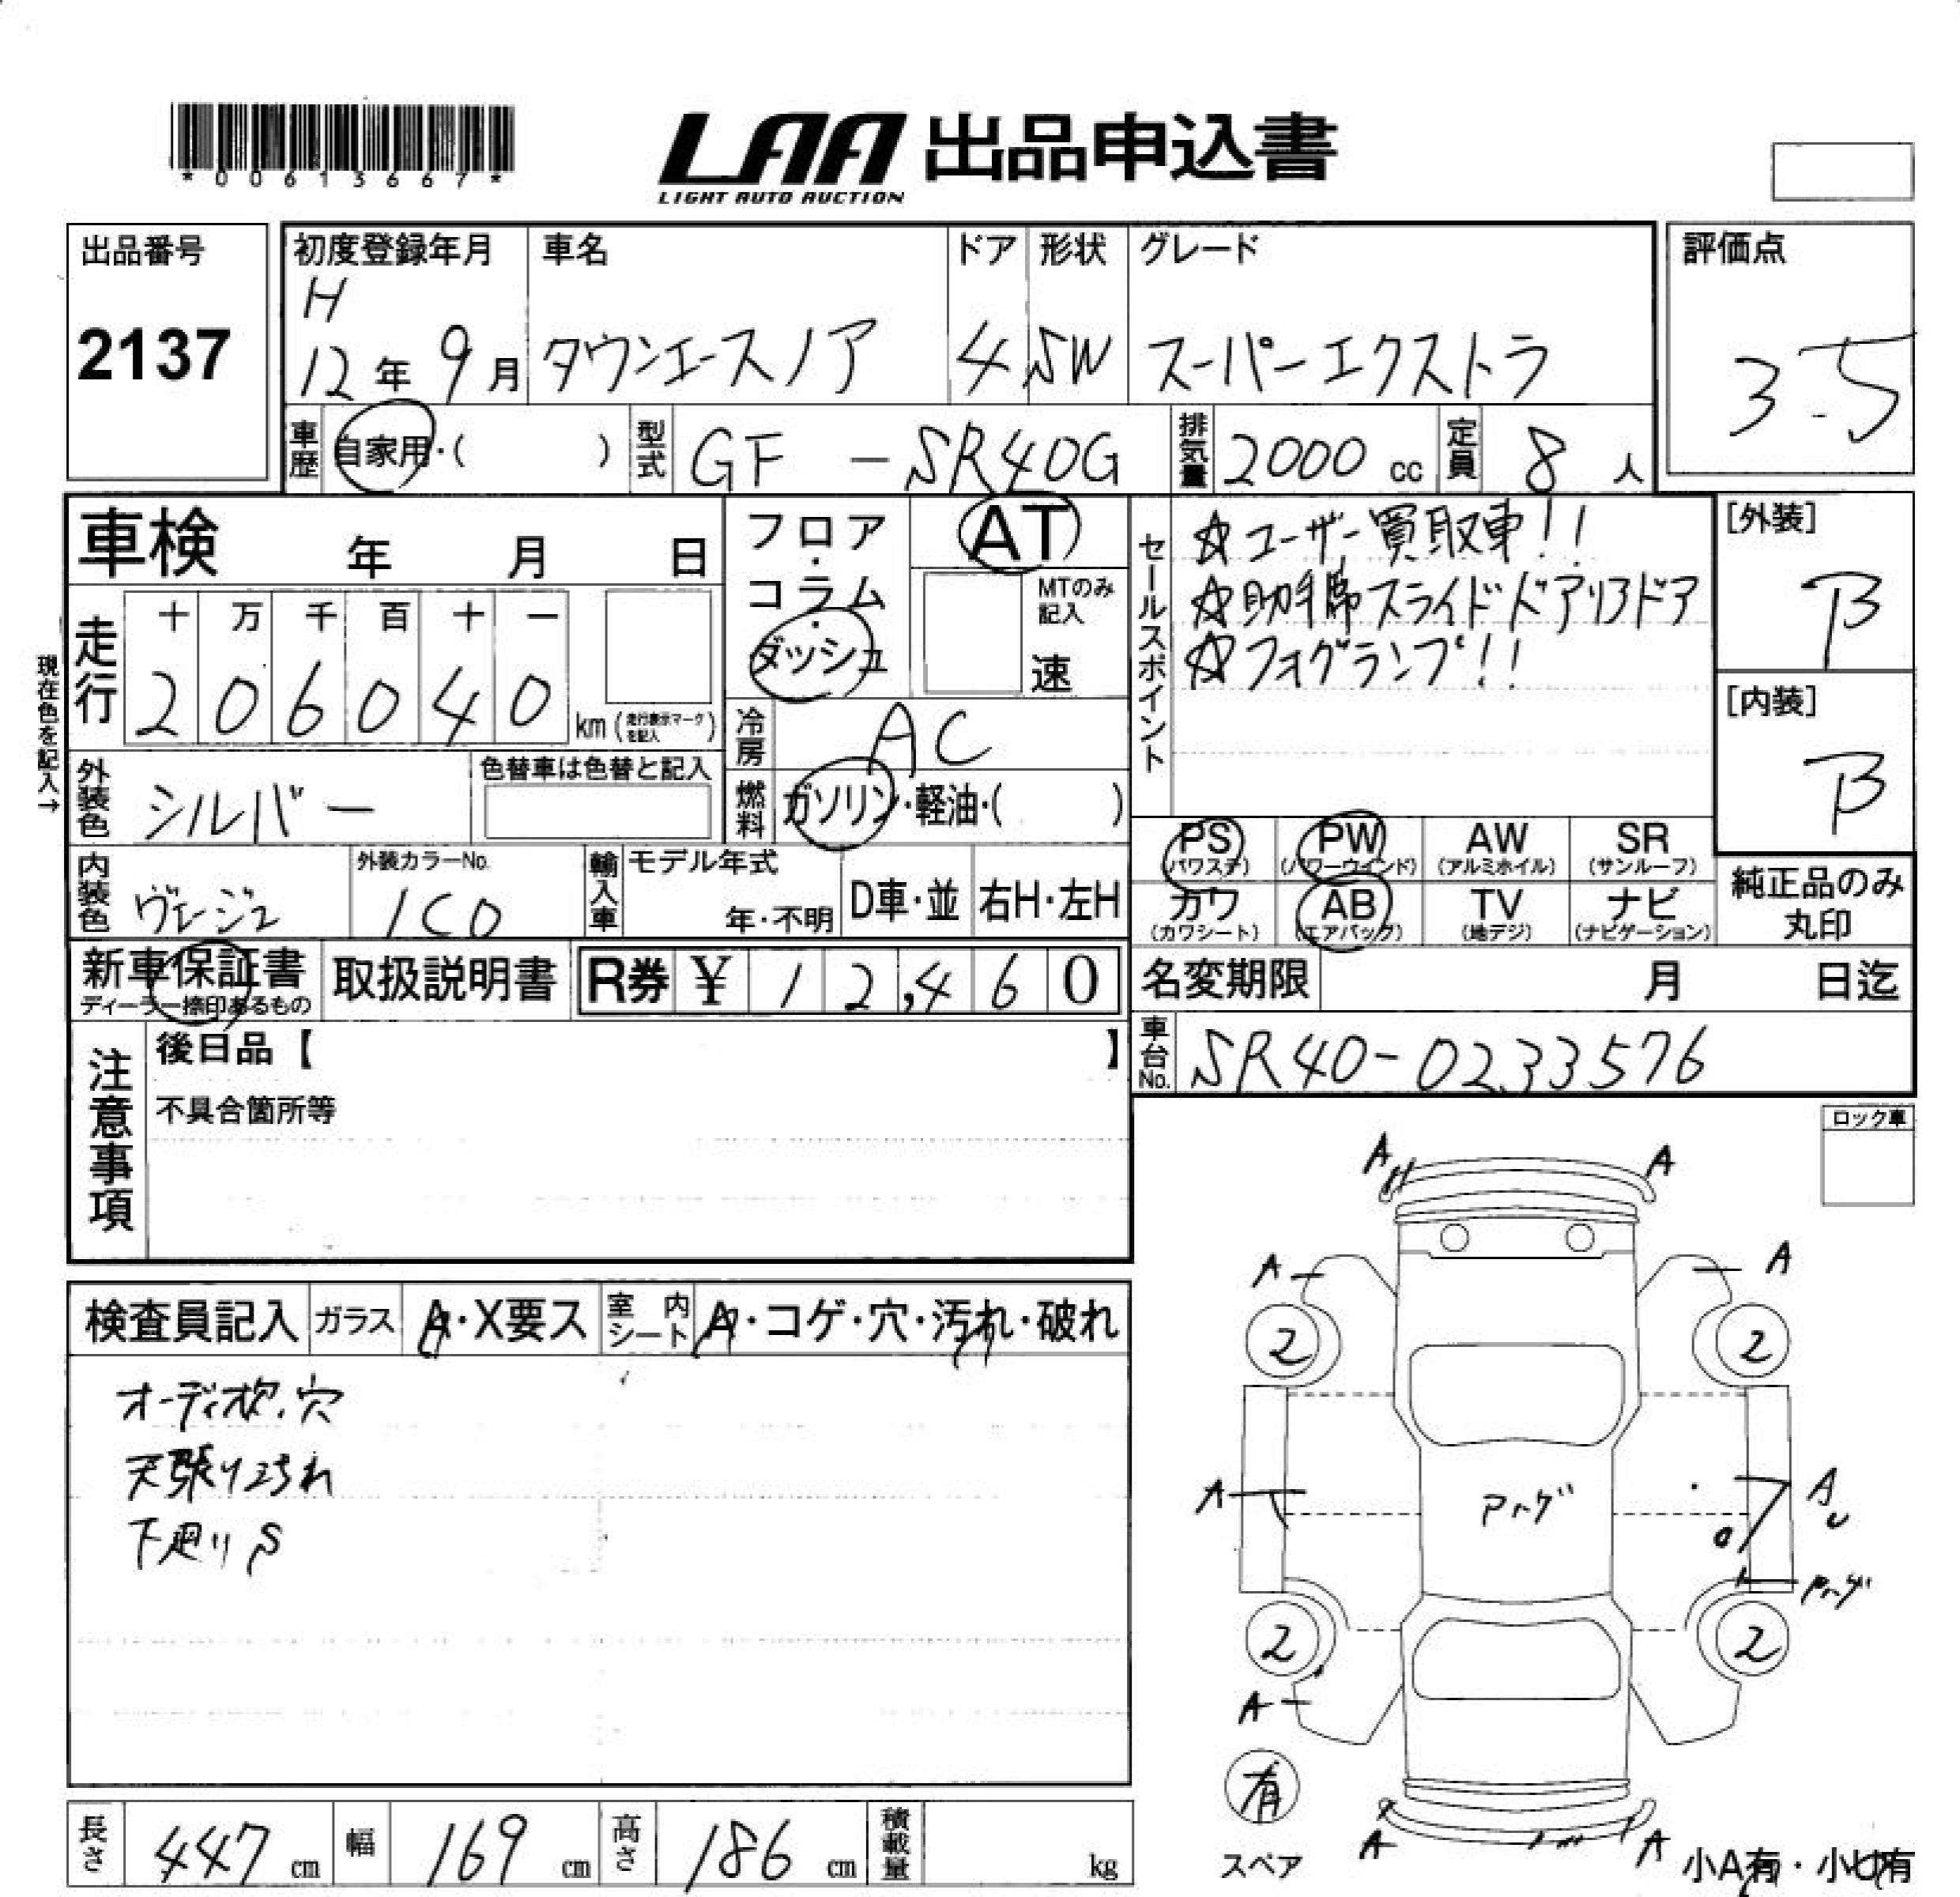 *00613667*
LAA 出品申込書
LIGHT AUTO AUCTION
出品番号
2137
初度登録年月
H
12年 9月
車名
タウンエースノア
ドア
4
形状
SW
グレード
スーパーエクストラ
評価点
3.5
車歴 自家用・( )
型式 GF - SR40G
排気量 2000 cc
定員 8 人
車検 年 月 日
フロア・コラム・ダッシュ
AT
MTのみ記入
速
現在色を記入→
走行
十 万 千 百 十 一
2 0 6 0 4 0 km (走行表示マークを記入)
冷房 AC
外装色 シルバー
色替車は色替と記入
燃料 ガソリン・軽油・( )
内装色 ヴェージュ
外装カラーNo.
1C0
輸入車 モデル年式
年・不明
D車・並
右H・左H
新車保証書
ディーラー捺印あるもの
取扱説明書
R券 ¥ 12,460
セールスポイント
☆ユーザー買取車!!
☆助手席スライドドアリアドア
☆フォグランプ!!
[外装]
B
[内装]
B
PS (パワステ)
PW (パワーウインド)
AW (アルミホイル)
SR (サンルーフ)
カワ (カワシート)
AB (エアバック)
TV (地デジ)
ナビ (ナビゲーション)
純正品のみ丸印
名変期限 月 日迄
車台No. SR40-0233576
注意事項
後日品【 】
不具合箇所等
ロック車
検査員記入
ガラス A・X要ス
室内シート A・コゲ・穴・汚れ・破れ
オーディオ欠.穴
天張り汚れ
下廻りS
A A
A A
2 2
A A
U
2 2
A
有
スペア
A A
小A有・小U有
長さ 447 cm
幅 169 cm
高さ 186 cm
積載量 kg